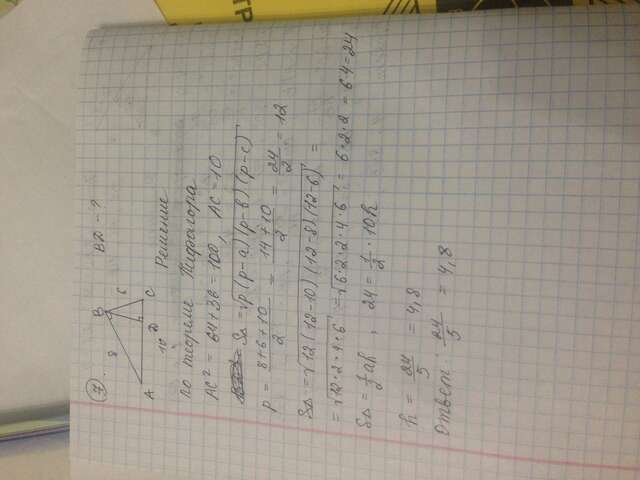 7.
BD - ?
B
8
6
A
D
C
10
Решение
По теореме Пифагора
AC² = 64+36 = 100, AC = 10
S△ = √p(p-a)(p-b)(p-c)
p = 8+6+10/2 = 14+10/2 = 24/2 = 12
S△ = √12(12-10)(12-8)(12-6) =
= √12·2·4·6 = √6·2·2·4·6 = 6·2·2 = 6·4=24
S△ = 1/2 ah, 24 = 1/2 · 10h
h = 24/5 = 4,8
Ответ: 24/5 = 4,8